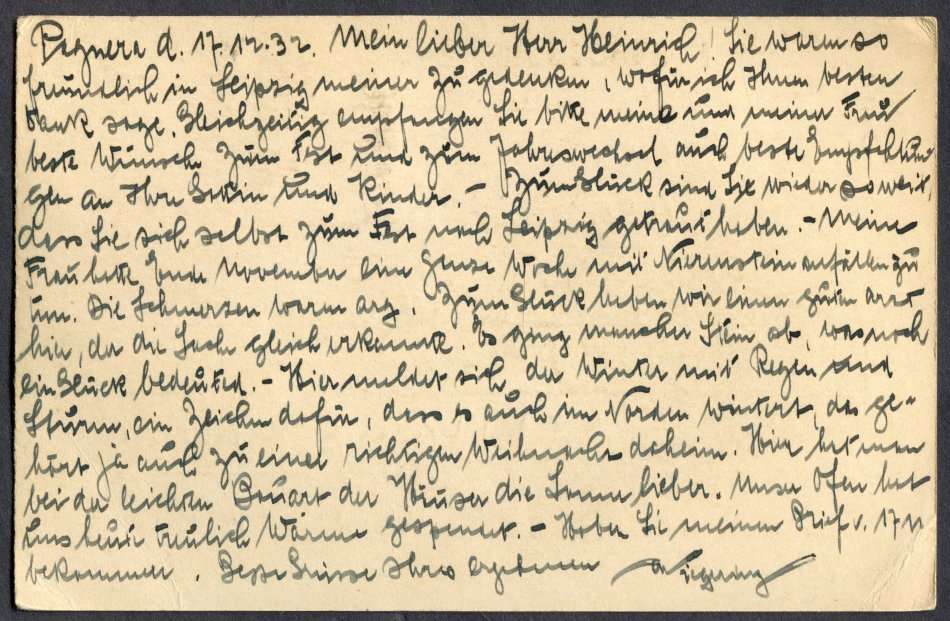 d. 17.12.32. Mein lieber Herr Heinrich! Sie waren so
freundlich in Leipzig meiner zu gedenken, wofür ich Ihnen besten
Dank sage. Gleichzeitig empfangen Sie bitte meine und meiner Frau
beste Wünsche zum Fest und zum Jahreswechsel auch beste Empfehlun-
gen an Ihre Gattin und Kinder. – Zum Glück sind Sie wieder so weit,
dass Sie sich selbst zum Fest nach Leipzig getraut haben. – Meine
Frau hatte Ende November eine ganze Woche mit Nierensteinanfällen zu
tun. Die Schmerzen waren arg. Zum Glück haben wir einen guten Arzt
hier, der die Sache gleich erkannte. Es ging mancher Stein ab, was noch
ein Glück bedeuted. – Hier meldet sich der Winter mit Regen und
Sturm, ein Zeichen dafür, dass es auch im Norden wintert, das ge-
hört ja auch zu einer richtigen Weihnacht daheim. Hier hat man
bei der leichten Bauart der Häuser die Sonne lieber. Unser Ofen hat
uns heute treulich Wärme gespendet. – Haben Sie meinen Brief v. 17.11
bekommen. Beste Grüsse Ihres ergebenen